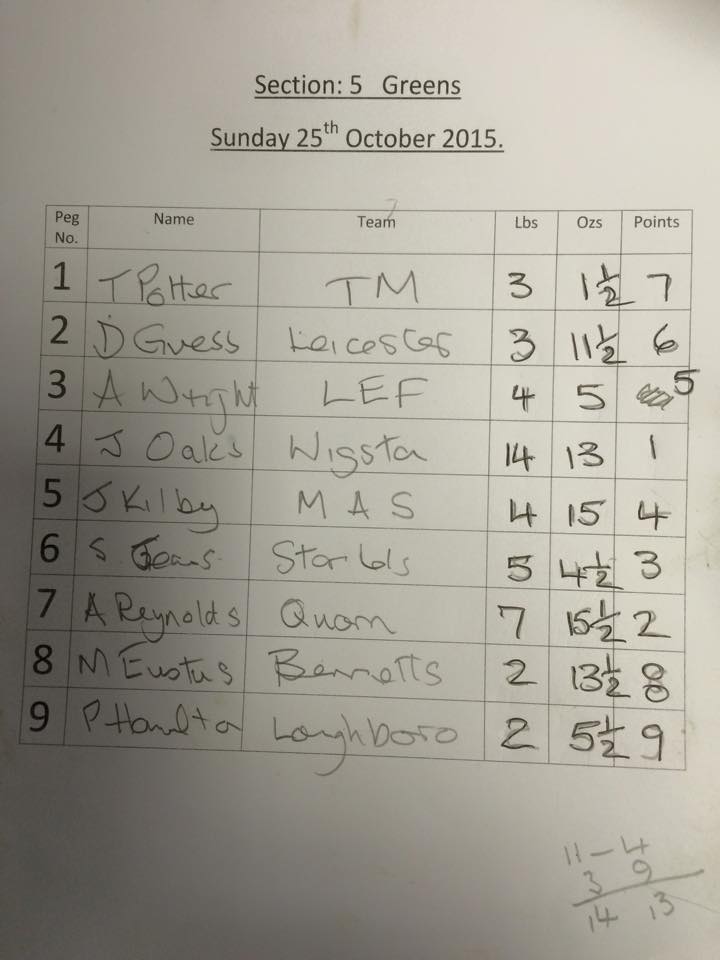 Section: 5 Greens
Sunday 25th October 2015.
Peg No. Name Team Lbs Ozs Points
1 T Potter TM 3 1½ 7
2 D Guess Leicester 3 11½ 6
3 A Wright LEF 4 5 5
4 J Oaks Wigsta 14 13 1
5 J Kilby M A S 4 15 4
6 S Starlbls 5 4½ 3
7 A Reynolds Quorn 7 15½ 2
8 M Eustus Bennetts 2 13½ 8
9 P Hamilta Loughboro 2 5½ 9
11 – 4
3 9
14 13